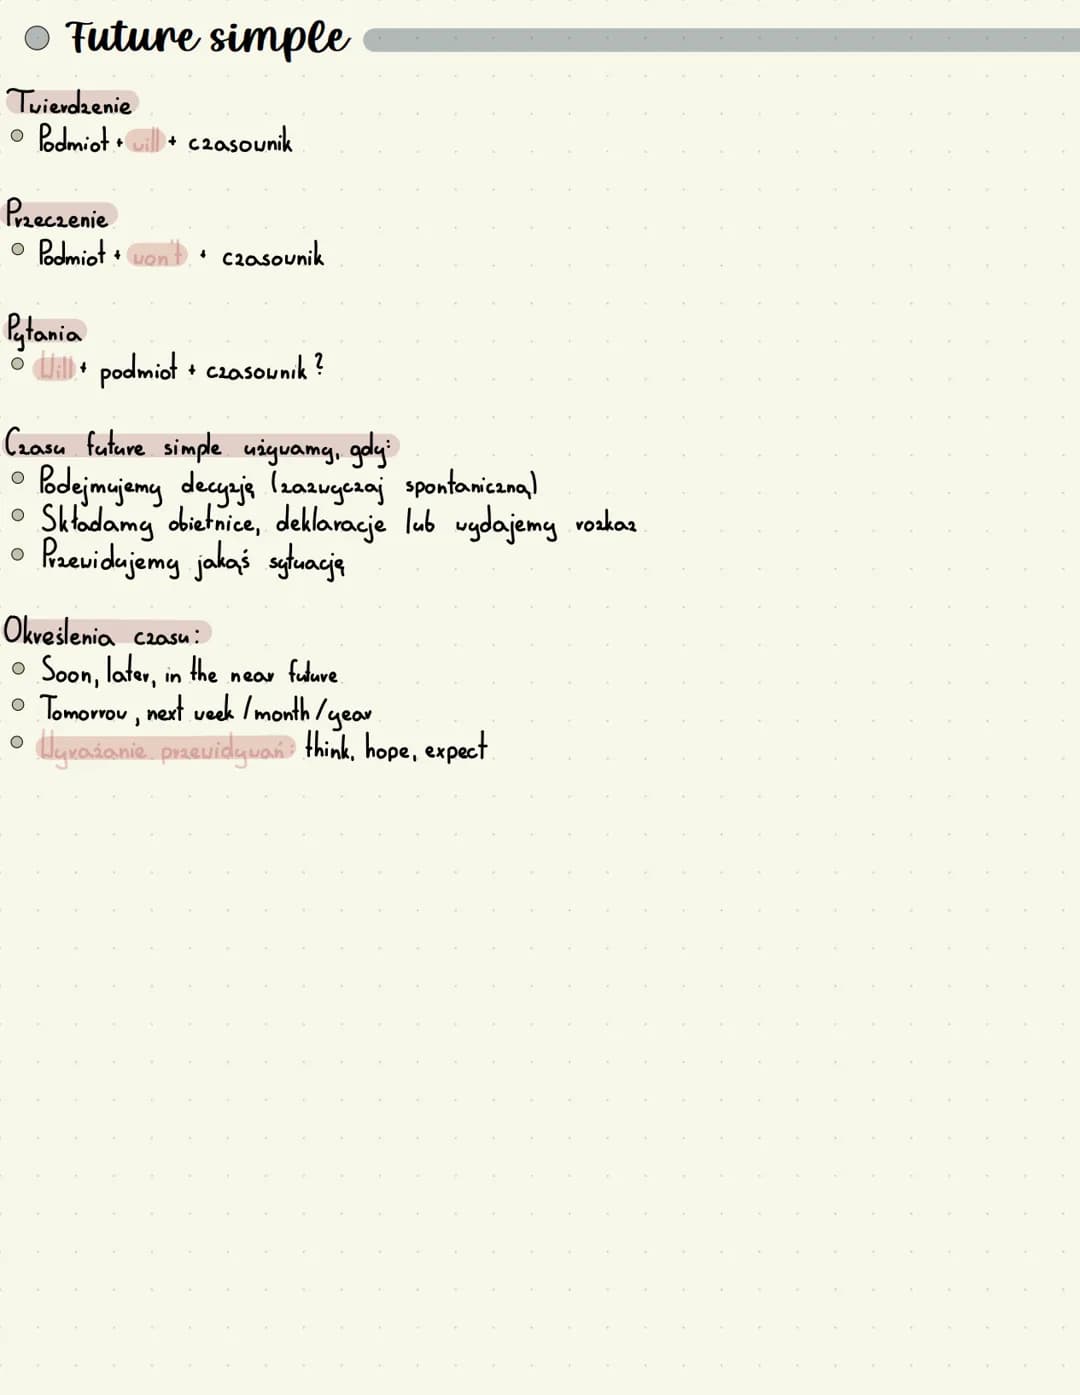 Future simple
Twierdzenie
Podmiot + will + czasownik
Przeczenie
Podmiot + won't + czasownik
Pytania
Will + podmiot + czasownik?
Czasu future simple używamy, gdy:
Podejmujemy decyzję (zazwyczaj spontaniczną)
Składamy obietnice, deklaracje lub wydajemy rozkaz
Przewidujemy jakąś sytuację
Określenia czasu:
Soon, later, in the near future
Tomorrow, next week /month /year
Wyrażanie przewidywań: think, hope, expect